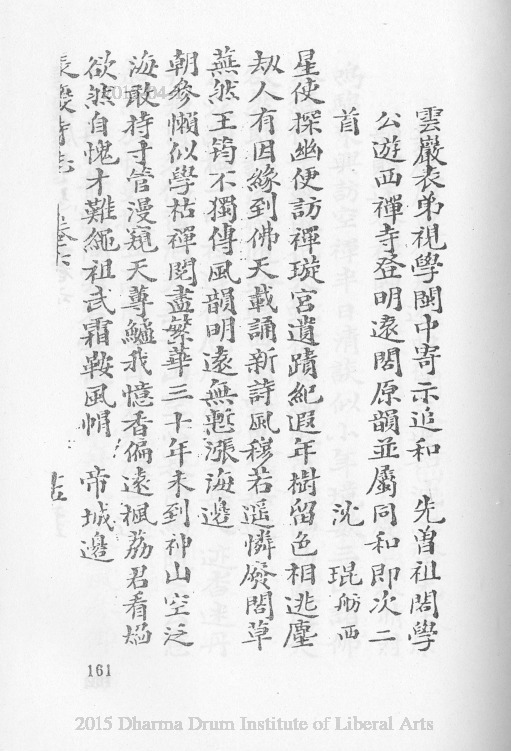 雲巖表弟視學閩中寄示追和　先曾祖閣學
公遊西禪寺登明遠閣原韻並屬同和即次二
首　　　沈　琨舫西
星使探幽便訪禪璇宮遺蹟紀遐年樹留色相逃塵
劫人有因緣到佛天載誦新詩風穆若遥憐廢閣草
蕪然王筠不獨傳風韻明遠無慙漲海邊
朝參懶似學枯禪閱盡繁華三十年未到神山空泛
海敢持寸管漫窺天蓴鱸我憶香偏遠楓荔君看熖
欲然自愧才難繩祖武霜鞍風帽　帝城邊
長慶寺志
161
2015 Dharma Drum Institute of Liberal Arts